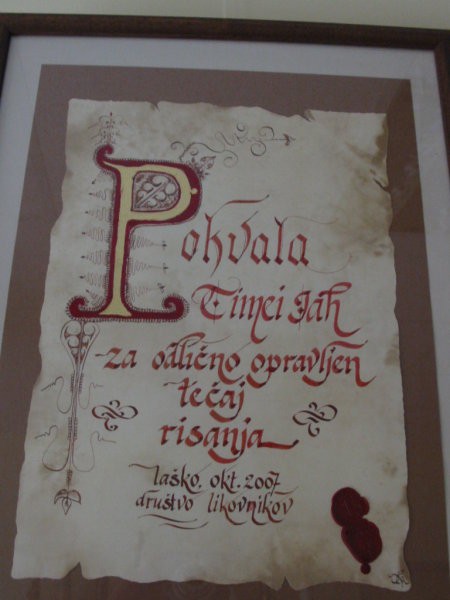 Pohvala
Timei Jah
za odlično opravljen
tečaj
risanja
laško, okt. 2007
društvo likovnikov